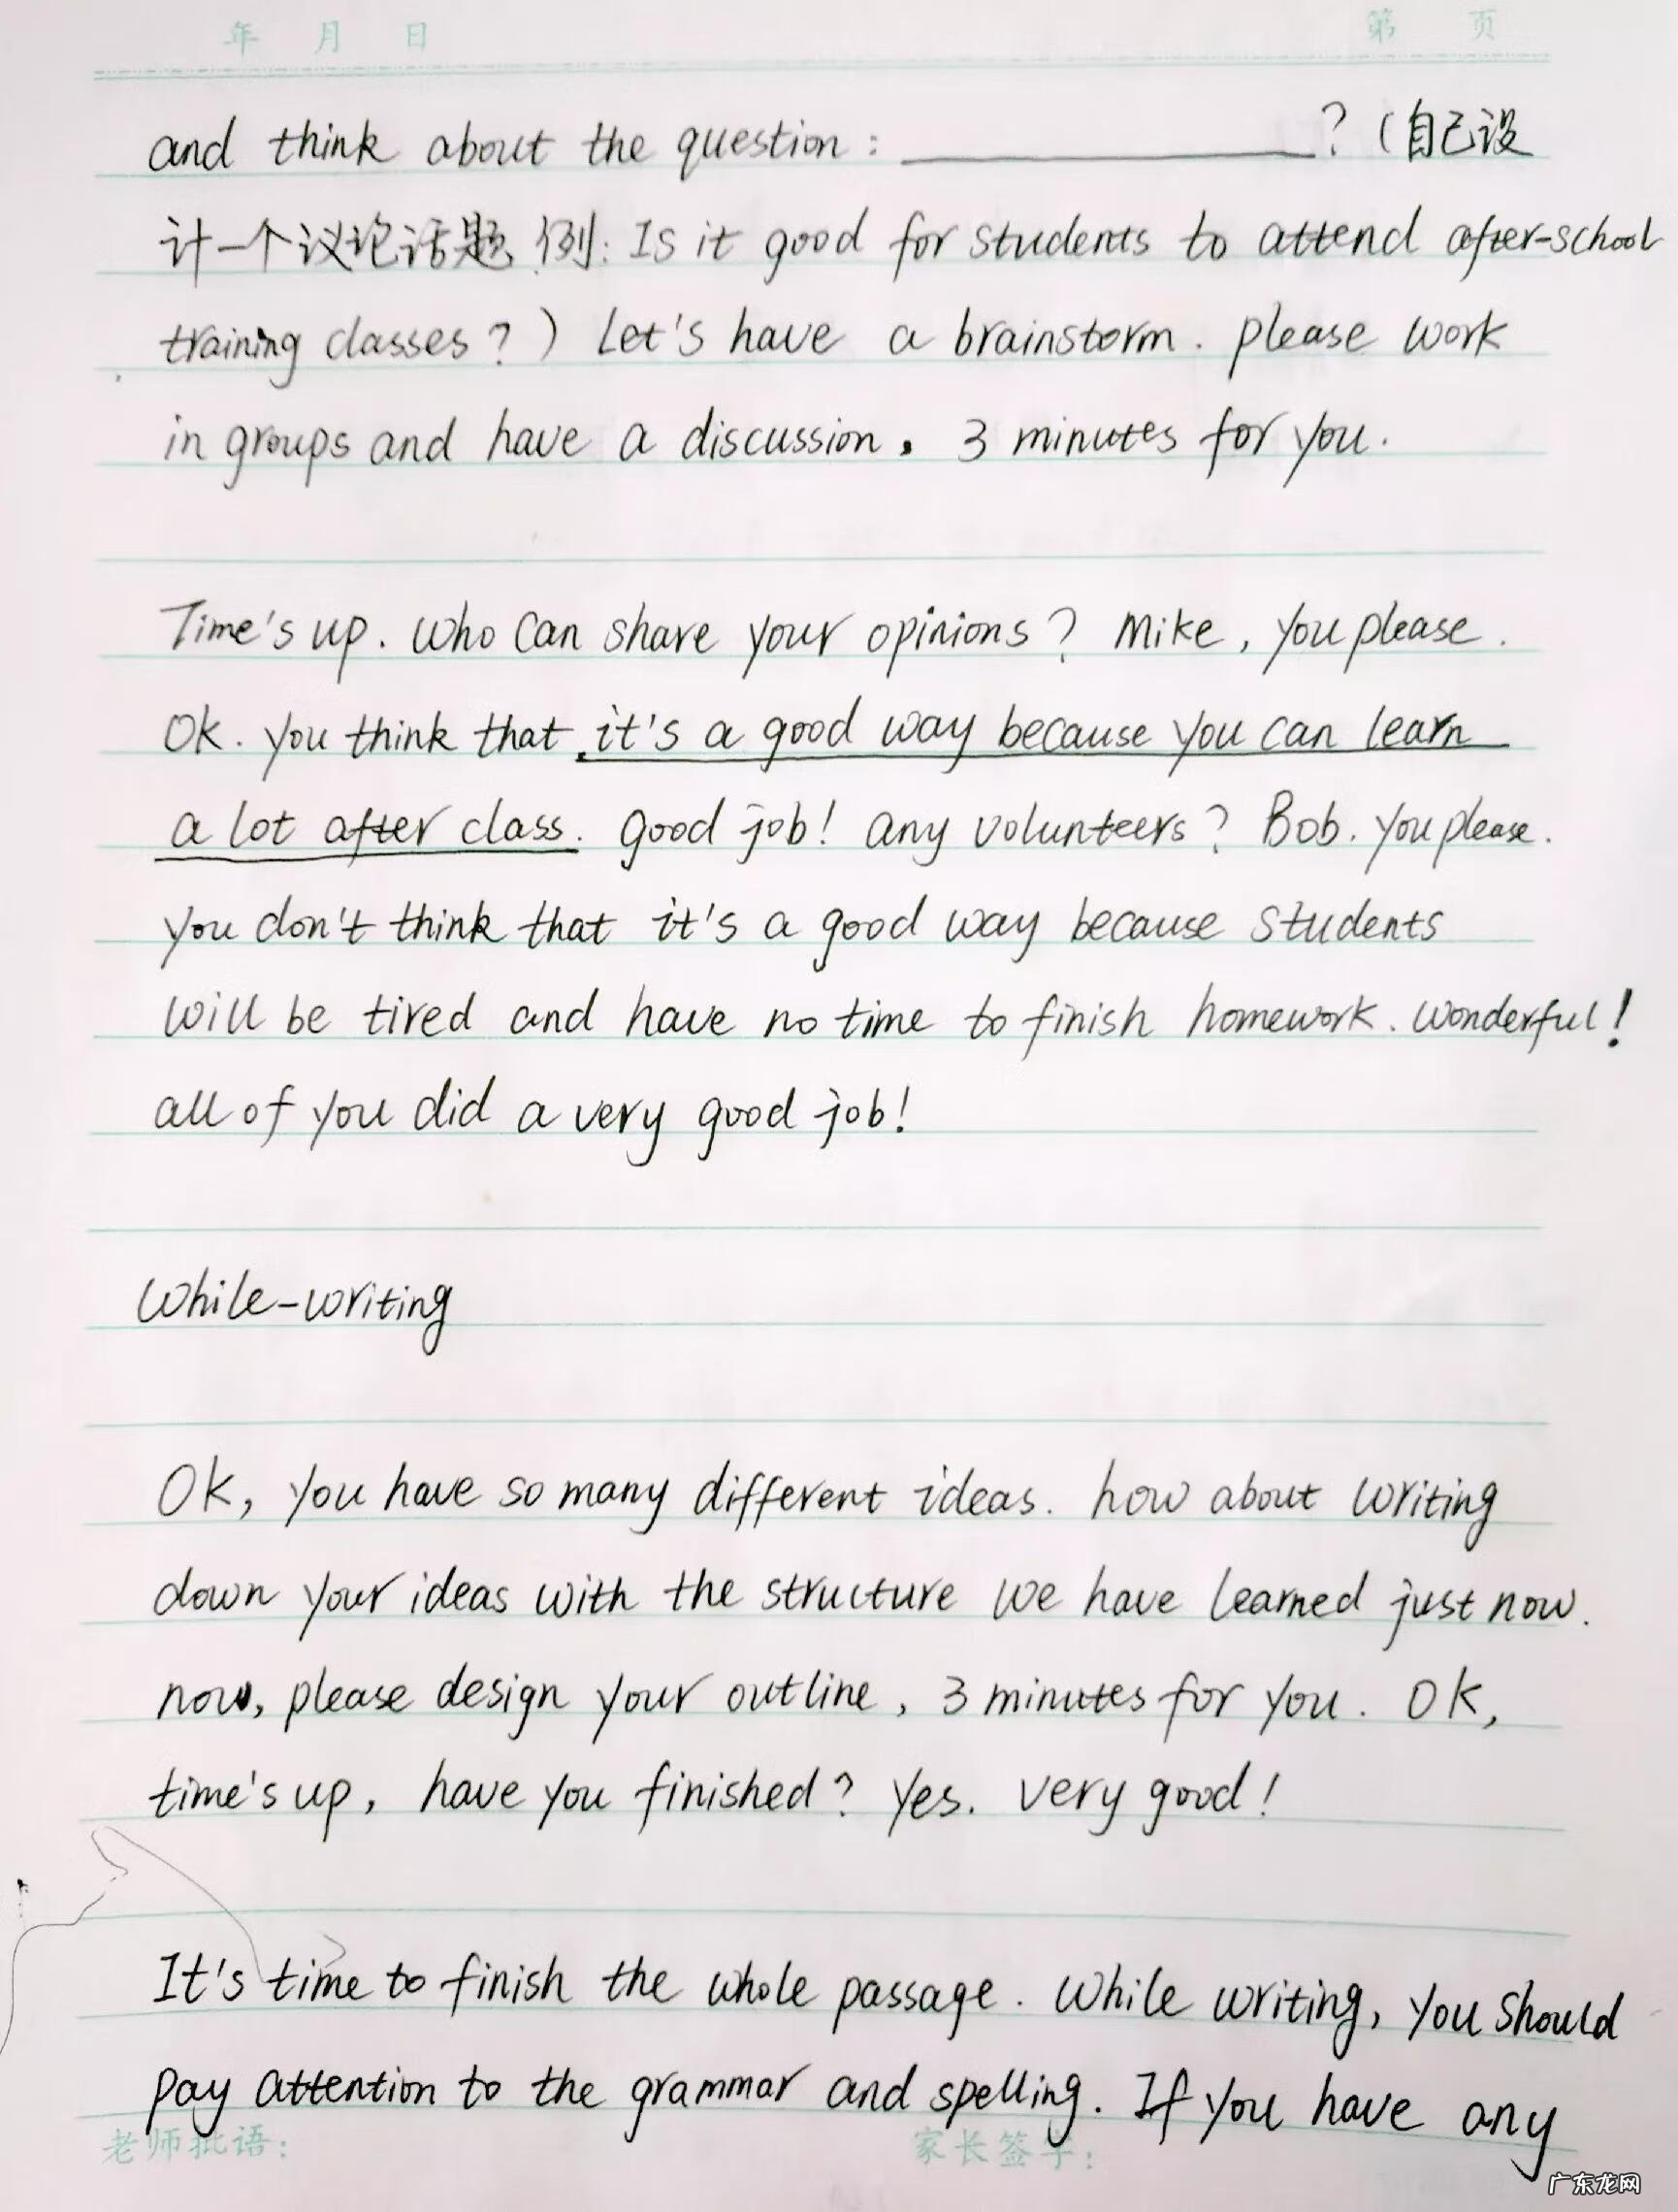 年 月 日 第 页
and think about the question: ____________? (自己设
计一个议论话题 例: Is it good for students to attend after-school
training classes?) Let's have a brainstorm. please work
in groups and have a discussion, 3 minutes for you.
Time's up. Who can share your opinions? Mike, you please.
Ok. you think that it's a good way because you can learn
a lot after class. good job! any volunteers? Bob. you please.
you don't think that it's a good way because students
will be tired and have no time to finish homework. wonderful!
all of you did a very good job!
While-writing
OK, you have so many different ideas. how about writing
down your ideas with the structure we have learned just now.
now, please design your outline, 3 minutes for you. OK,
time's up, have you finished? Yes. very good!
It's time to finish the whole passage. While writing, you should
pay attention to the grammar and spelling. If you have any
老师批语: 家长签字:
广东龙网